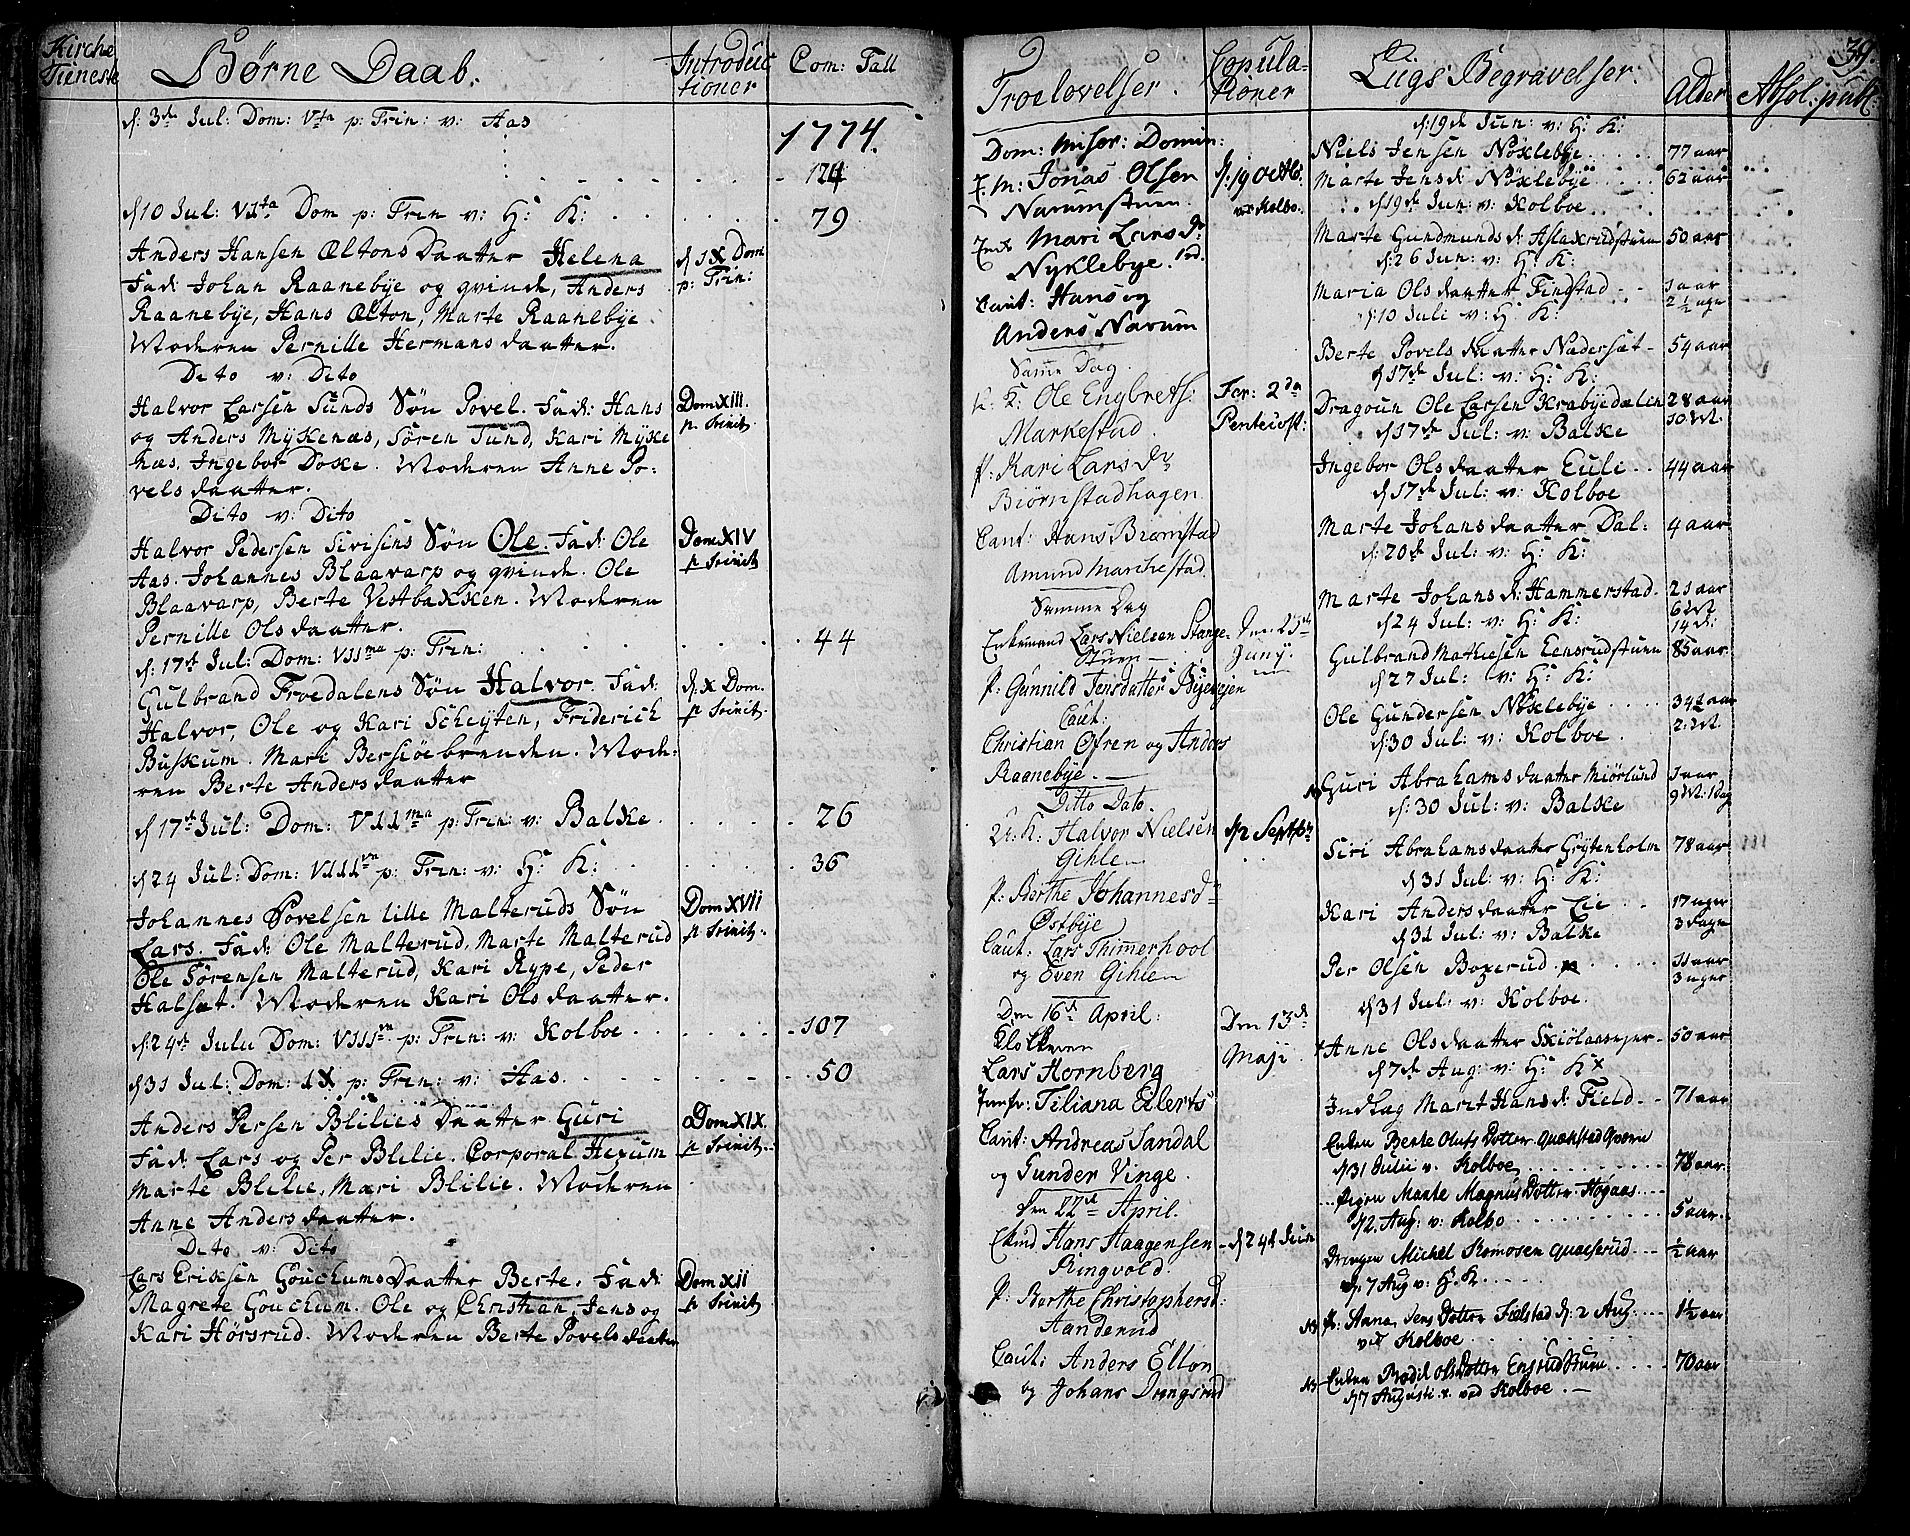 Kirche
Tieneste
Børne Daab.
Introduc
tioner
Com: Tall
d: 3de Jul: Dom: Vta p: Trin: v: Aas
1774.
124
d 10 Jul: VIta Dom p: Trin v: H: K:
79
Anders Hansen Æltons Daatter Helena
d IX Dom
Fad: Johan Raanebye og qvinde, Anders
p: Trin:
Raanebye, Hans Ælton, Marte Raanebye.
Moderen Pernille Hermans daatter.
Dito v: Dito
Halvor Larsen Sunds Søn Povel. Fad: Hans
Dom XIII.
og Anders Myskenæs, Sören Sund, Kari Myske
p. Trinit.
næs. Ingebor Doxe. Moderen Anne Po-
vels daatter.
Dito v: Dito
Halvor Pedersen Sivisins Søn Ole. Fad: Ole
Dom XIV
Aas. Johannes Blaavarp og qvinde. Ole
p Trinit
Blaavarp, Berte Vestbakken. Moderen
Pernille Ols daatter.
d: 17de Jul: Dom: VIIma p: Trin:
44
Gulbrand Froedalens Søn Halvor. Fad:
d. X Dom.
Halvor, Ole og Kari Scheyten, Friderich
p Trinit
Buskum. Mari Bersiöebrenden. Mode:
ren Berte Anders daatter
d 17de Jul: Dom: VIIma p: Trin: v: Balke.
26
d 24 Jul: Dom: VIIIva p: Trin: v: H: K:
36
Johannes Povelsen lille Malteruds Søn
Dom XVII
Lars. Fad: Ole Malterud, Marte Malterud
p Trinit.
Ole Sörensen Malterud, Kari Rype, Peder
Halset. Moderen Kari Ols daatter.
d: 24de Julii Dom: VIIIva p: Trin: v: Kolboe
107
d 31 Jul: Dom: IX p: Trin: v: Aas.
50
Anders Persen Blilies Daatter Guri
Dom XIX.
Fad: Lars og Per Blilie. Corporal Hexum
p Trinit.
Marte Blilie, Mari Blilie. Moderen
Anne Anders daatter.
Dito v: Dito
Lars Erixsen Gouchums Daatter Berte. Fad:
Dom XII
Magrete Gouchum. Ole og Christian, Jens og
p Trinit
Kari Hörsrud. Moderen Berte Povels daater
Troelovelser.
Copula-
tioner
Dom: Miser: Domin:
J. M: Jonas Olsen
d: 19 Octbr.
Narumstuen.
v: Kolbo.
Mari Lars dr
Nyklebye. ibd.
Caut: Hans og
Anders Narum
Samme Dag.
K: Ole Engbrets:
Fer: 2da
Markestad.
Pentecost:
P: Kari Lars dr
Biørnstadhagen
Caut: Hans Biørnstad
Amund Marchestad.
Samme Dag
Enkemand Lars Nielsen Stange
Den 25de
Stuen
Junij.
P: Gunnild Jensdatter Byeveien
Caut:
Christian Ofren og Anders
Raanebye.
Ditto Dato.
U. K: Halvor Nielsen
d 2 Septbr
Gihlen
P: Berthe Johannesd
Østbye
Caut: Lars Thimmerhool
og Even Gihlen
Den 16de April.
Den 13de
Klokkeren
Maji
Lars Hornberg
Jomfr: Tiliana Elerts
Caut: Andreas Sandal
og Gunder Vinge.
Den 22de April.
Ekmd Hans Haagensen
d 24de Juni
Ringvold.
P: Berthe Christophersd:
Aanderud
Caut: Anders Elton
og Johans Drengsrud
Liigs Begravelser.
Alder
Absol: publ:
39.
d: 19de Jun: v: H: K:
Niels Jensen Nöxlebye
77 aar
Marte Jens d: Nöxlebye
62 aar
d 19de Jun: v: Kolboe
Marte Gundmunds d: Aslaxrudstuen 50 aar
d: 26 Jun: v: H: K:
Maria Ols daatter Finstad
1 aar
2 1/2 uge
d: 10 Juli v: H: K:
Berte Povels daatter Nedersæt
54 aar
d 17de Jul: v: H: K:
Dragoun Ole Larsen Krabyedalen 28 aar
d: 17de Jul: v: Balke
Ingebor Ols daatter Euli
44 aar
d 17de Jul: v: Kolboe
Marte Johans daatter Dal:
4 aar
d: 20de Jul: v: H: K:
Marte Johans d: Hammerstad.
21 aar
6 Vt.
14 d:
d: 24 Jul: v: H: K:
Gulbrand Mathiesen Eensrudstuen 85 aar
d: 27 Jul: v: H: K:
Ole Gundersen Nöxlebye
34 1/2 aar
2. Vt.
d: 30 Jul: v: Kolboe.
Guri Abrahams daatter Miörlund
1 aar
9 Vt: 1 Dag
d: 30 Jul: v: Balke
Siri Abrahams daatter Grytenholm
78 aar
d 31 Jul: v: H: K:
Kari Anders daatter Lie
17 uger
3 dage
d 31 Jul: v: Balke
Per Olsen Boxerud
3 uger
d 31 Jul: v: Kolboe.
Anne Ols daatter Skiölaaseyer
50 aar
d 7de Aug: v: H: K
Indlag Marit Hans d: Field
71 aar
Enken Berte Olufs Dotter Quækstad Qværn
d 31 Julii v. Kolboe
78 aar
Pigen Marte Magnus Dotter Høgaas
d 2. Aug: v: Kolbo
5 aar.
Drengen Michel Romosen Quæserud
1/2 aar
d 7 Aug v: H. K.
NB P: Anna Jens Dotter Fielstad d: 2 Aug.
1 1/2 aar
ved Kolboe
NB Enken Bodil Ols Dotter Ensrud Stuen
70 aar
d 7 Augusti ved Kolboe.